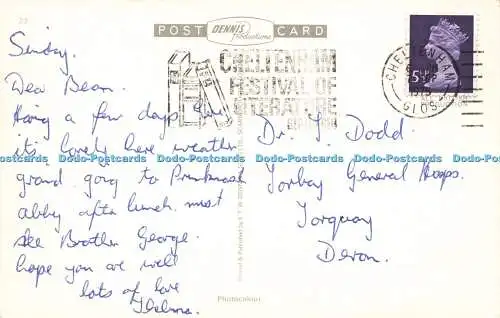 23
POST CARD
DENNIS
Productions
CHELTENHAM
FESTIVAL OF
LITERATURE
CHELTENHAM
GLOS
5½P
Sunday.
Dear Bean.
Having a few days here
it's lovely here weather
grand. going to Prinknash
abby after lunch. must
see Brother George.
hope you are well
lots of love
Thelma.
Dr. J. Dodd.
Torbay General Hosps.
Torquay
Devon.
Photocolour
Dodo-Postcards Dodo-Postcards Dodo-Postcards Dodo-Postcards Dodo-Postcards